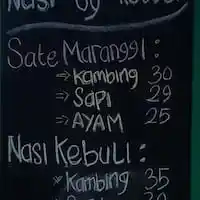 Nasi
Sate Maranggi :
⇒ Kambing 30
⇒ Sapi 29
⇒ AYAM 25
Nasi Kebuli :
Kambing 35